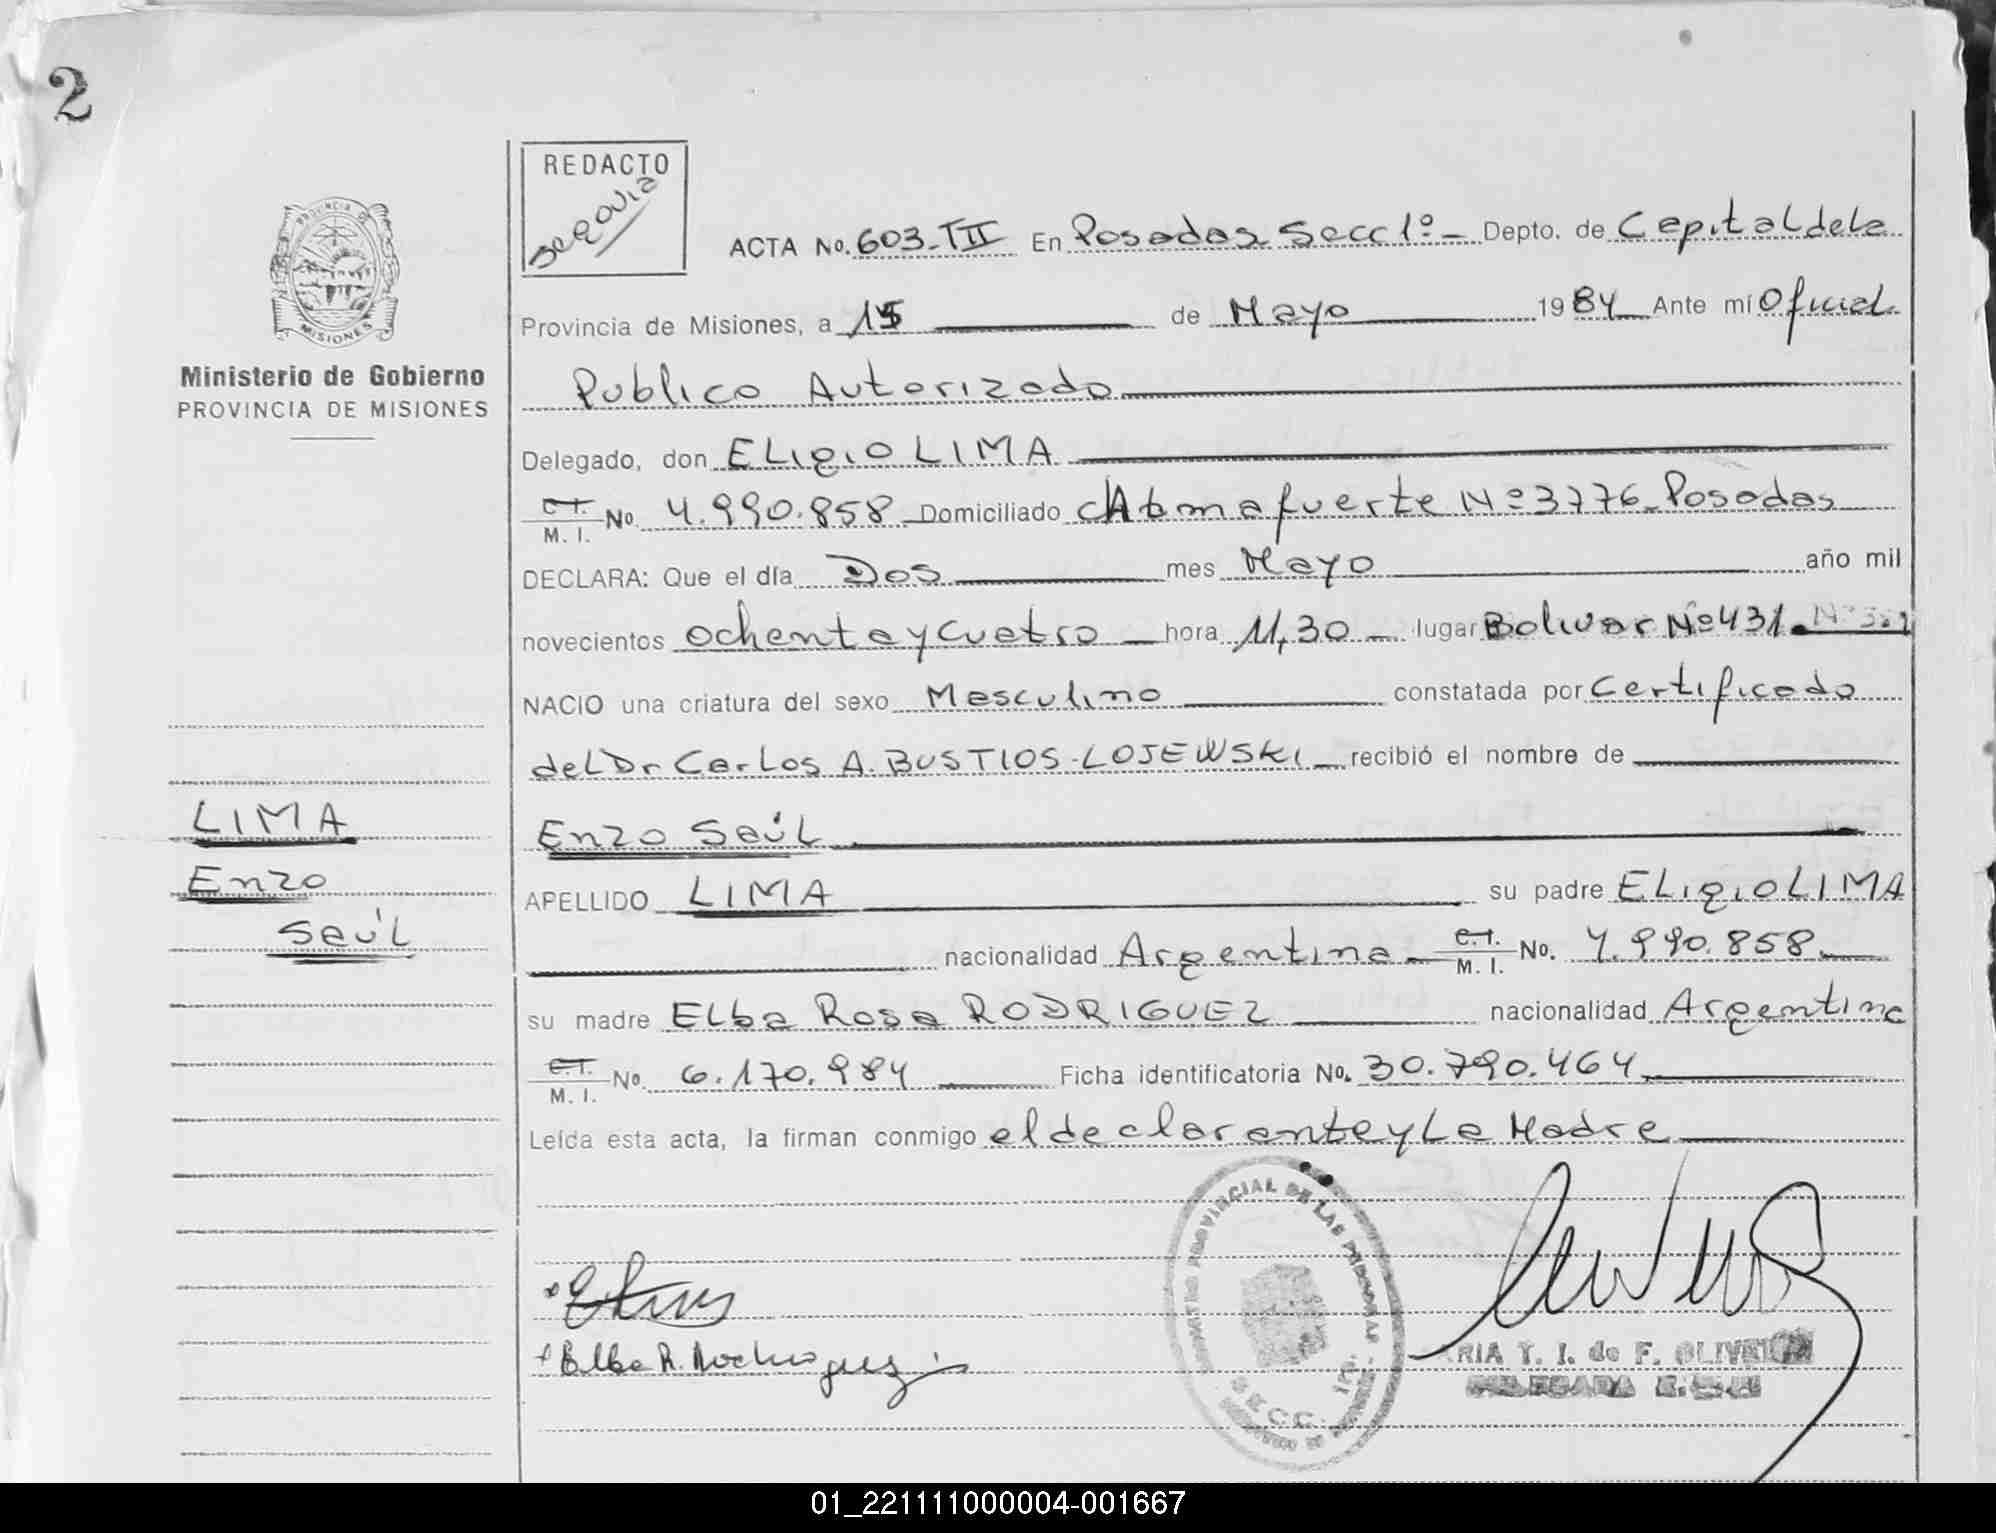 2
REDACTO
PROVINCIA DE
MISIONES
Ministerio de Gobierno
PROVINCIA DE MISIONES
ACTA No. 603-III En Posadas Secc 1º- Depto. de Capital de la
Provincia de Misiones, a 15 de Mayo 1984 Ante mí Oficial
Publico Autorizado
Delegado, don ELigio LIMA
C.I. M. I. No 4.990.858 Domiciliado c/Almafuerte Nº 3776-Posadas
DECLARA: Que el día Dos mes Mayo año mil
novecientos ochenta y cuatro hora 11,30 lugar Bolivar Nº 431.
NACIO una criatura del sexo Masculino constatada por Certificado
del Dr Carlos A. BUSTIOS-LOJEWSKI recibió el nombre de
Enzo Saúl
APELLIDO LIMA su padre ELigio LIMA
nacionalidad Argentina C.I. M. I. No. 4.990.858
su madre ELba Rosa RODRIGUEZ nacionalidad Argentina
C.I. M. I. No. 6.170.984 Ficha identificatoria No. 30.790.464
Leída esta acta, la firman conmigo el declarante y La Madre
LIMA
Enzo
Saúl
PROVINCIAL DE LAS PERSONAS
SECC. 1ra.
Elba R. Rodriguez
RIA T. I. de F. OLIVEIRA
DELEGADA
01_221111000004-001667